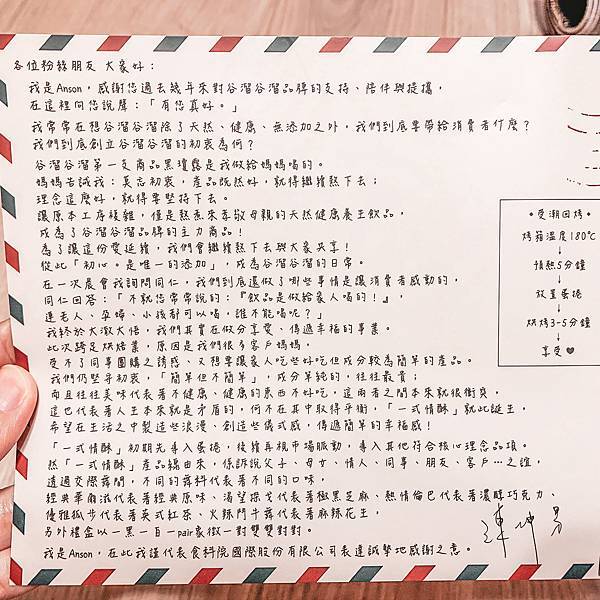 各位粉絲朋友 大家好：
我是Anson，感謝您過去幾年來對谷溜谷溜品牌的支持、陪伴與提攜，
在這裡向您說聲：「有您真好。」
我常常在想谷溜谷溜除了天然、健康、無添加之外，我們到底要帶給消費者什麼？
我們到底創立谷溜谷溜的初衷為何？
谷溜谷溜第一支商品黑瓊露是我做給媽媽喝的。
媽媽告誡我：莫忘初衷，產品既然好，就得繼續熬下去；
理念這麼好，就得要堅持下去。
讓原本工序複雜，僅是熬煮來孝敬母親的天然健康養生飲品，
成為了谷溜谷溜品牌的主力商品！
為了讓這份愛延續，我們會繼續熬下去與大家共享！
從此「初心。是唯一的添加」，成為谷溜谷溜的日常。
在一次晨會我詢問同仁，我們到底還做了哪些事情是讓消費者感動的，
同仁回答：「不就您常常說的：『飲品是做給家人喝的！』，
連老人、孕婦、小孩都可以喝，誰不能喝呢？」
我終於大澈大悟，我們其實在做分享愛、傳遞幸福的事業。
此次跨足烘焙業，原因是我們很多客戶媽媽，
受不了同事團購之誘惑、又想要讓家人吃些好吃但成分較為簡單的產品。
我們仍堅守初衷，「簡單但不簡單」，成分單純的，往往最貴；
而且往往美味代表著不健康、健康的東西不好吃，這兩者之間本來就很衝突，
這也代表著人生本來就是矛盾的，何不在其中取得平衡，「一式情酥」就此誕生，
希望在生活之中製造些浪漫、創造些儀式感，傳遞簡單的幸福感！
「一式情酥」初期先導入蛋捲，後續再視市場脈動，導入其他符合核心理念品項。
然「一式情酥」產品緣由來，係訴說父子、母女、情人、同事、朋友、客戶…之誼，
透過交際舞間，不同的舞科代表著不同的口味，
經典華爾滋代表著經典原味、渴望探戈代表著極黑芝麻、熱情倫巴代表著濃醇巧克力、
優雅狐步代表著英式紅茶、火辣鬥牛舞代表著麻辣花生，
另外禮盒以一黑一白一pair象徵一對雙雙對對。
我是Anson，在此我謹代表食科院國際股份有限公司表達誠摯地感謝之意。
•受潮回烤•
烤箱溫度180℃
↓
預熱5分鐘
↓
放置蛋捲
↓
烘烤3-5分鐘
↓
享受♥